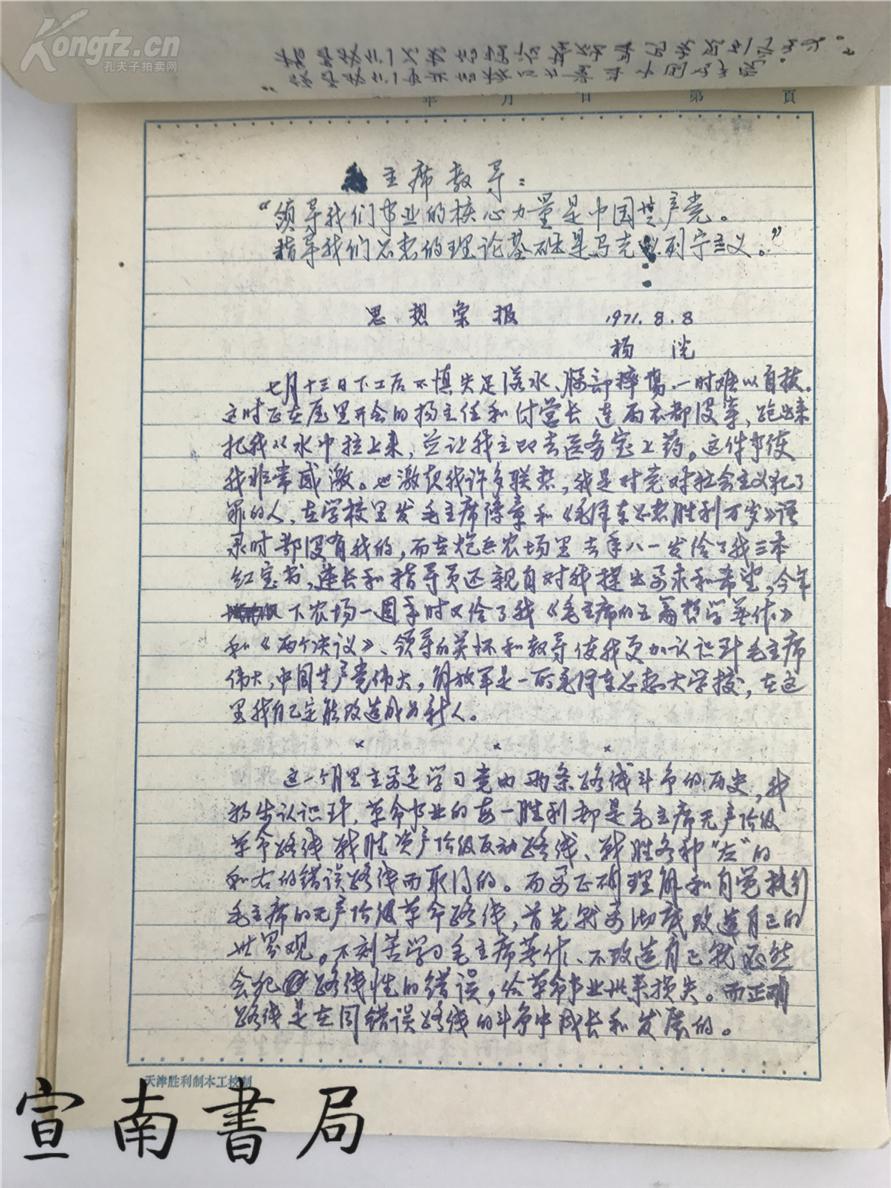 Kongfz.cn
孔夫子拍卖网
年 月 日 第 頁
主席教导：
“领导我们事业的核心力量是中国共产党。
指导我们思想的理论基础是马克思列宁主义。”
思想汇报 1971.8.8
杨
七月十三日下工后不慎失足落水、腰部摔伤一时难以自拔。
这时正在屋里开会的杨主任和付营长连雨衣都没拿，跑出来
把我从水中拉上来，并让我立即去医务室上药。这件事使
我非常感激。也激起我许多联想，我是对党对社会主义犯了
罪的人，在学校里发毛主席像章和《毛泽东思想胜利万岁》语
录时都没有我的，而在炮兵农场里去年八一发给了我三本
红宝书，连长和指导员还亲自对我提出要求和希望，今年
下农场一周年时又给了我《毛主席的五篇哲学著作》
和《两个决议》、领导的关怀和教导使我更加认识到毛主席
伟大，中国共产党伟大，解放军是一所毛泽东思想大学校，在这
里我自己定能改造成为新人。
× × ×
这一个月里主要是学习党内两条路线斗争的历史，我
初步认识到，革命事业的每一胜利都是毛主席无产阶级
革命路线战胜资产阶级反动路线、战胜各种“左”的
和右的错误路线而取得的。而要正确理解和自觉执行
毛主席的无产阶级革命路线，首先就要彻底改造自己的
世界观。不刻苦学习毛主席著作、不改造自己就必然
会犯路线性的错误，给革命事业带来损失。而正确
路线是在同错误路线的斗争中成长和发展的。
天津胜利制本工校制
宣南書局